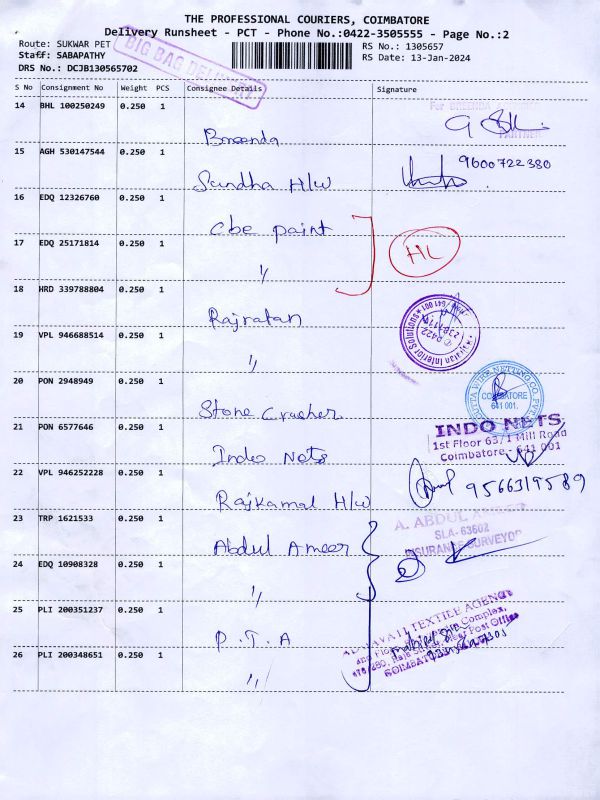 THE PROFESSIONAL COURIERS, COIMBATORE
Delivery Runsheet - PCT - Phone No.:0422-3505555 - Page No.:2
Route: SUKWAR PET
RS No.: 1305657
Staff: SABAPATHY
RS Date: 13-Jan-2024
DRS No.: DCJB130565702
BIG BAG DELIVERY
S No Consignment No Weight PCS Consignee Details Signature
14 BHL 100250249 0.250 1
For
PARTNER
15 AGH 530147544 0.250 1
9600722380
Sundha H/W
16 EDQ 12326760 0.250 1
Cbe paint
17 EDQ 25171814 0.250 1
HL
"
18 HRD 339788804 0.250 1
Rajratan
Rajratan Interior Solutions
0422
641 001
19 VPL 946688514 0.250 1
"
20 PON 2948949 0.250 1
WIRE NETTING CO.
COIMBATORE
641 001.
Stone Crusher
21 PON 6577646 0.250 1
INDO NETS
1st Floor 63/1 Mill Road
Coimbatore - 641 001
Indo Nets
22 VPL 946252228 0.250 1
9566319589
Rajkamal H/W
23 TRP 1621533 0.250 1
A. ABDUL AMEER
SLA-63602
INSURANCE SURVEYOR
Abdul Ameer
24 EDQ 10908328 0.250 1
"
25 PLI 200351237 0.250 1
TEXTILE AGENCY
Complex,
Post Office
COIMBATORE
P.T.A
26 PLI 200348651 0.250 1
"